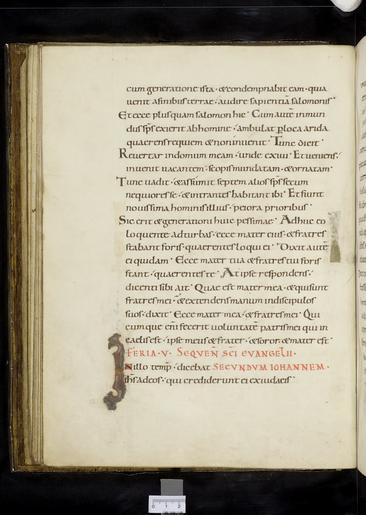 cum generatione ista · & condempnabit eam · quia
uenit a finibus terrae · audire sapientiā salomonis ·
Et ecce plus quam salomon hic · Cum autē inmun
dus sp̄s exierit ab homine · ambulat ꝑ loca arida
quaerens requiem & non inuenit · Tunc dicit ·
Reuertar in domum meam · unde exiui · Et ueniens ·
inuenit uacantem · scopis mundatam · & ornatam ·
Tunc uadit · & assumit septem alios sp̄s secum
nequiores se · & intrantes habitant ibi · Et fiunt
nouissima hominis illius · peiora prioribus ·
Sic erit & generationi huic pessimae · Adhuc eo
loquente ad turbas · ecce mater eius · & fratres
stabant foris · quaerentes loqui ei · Dixit autē
ei quidam · Ecce mater tua & fratres tui foris
stant · quaerentes te · At ipse respondens ·
dicenti sibi ait · Quae est mater mea · & qui sunt
fratres mei · & extendens manum in discipulos
suos · dixit · Ecce mater mea · & fratres mei · Qui
cumque enī fecerit uoluntatē patris mei qui in
caelis est · ipse meus & frater · & soror · & mater est ·
FERIA · V · SEQUEN̄ SC̄I EVANGELII ·
In illo temp̄ · dicebat SECUNDUM IOHANNEM ·
ih̄s ad eos · qui crediderunt ei ex iudaeis ·
0 1 2